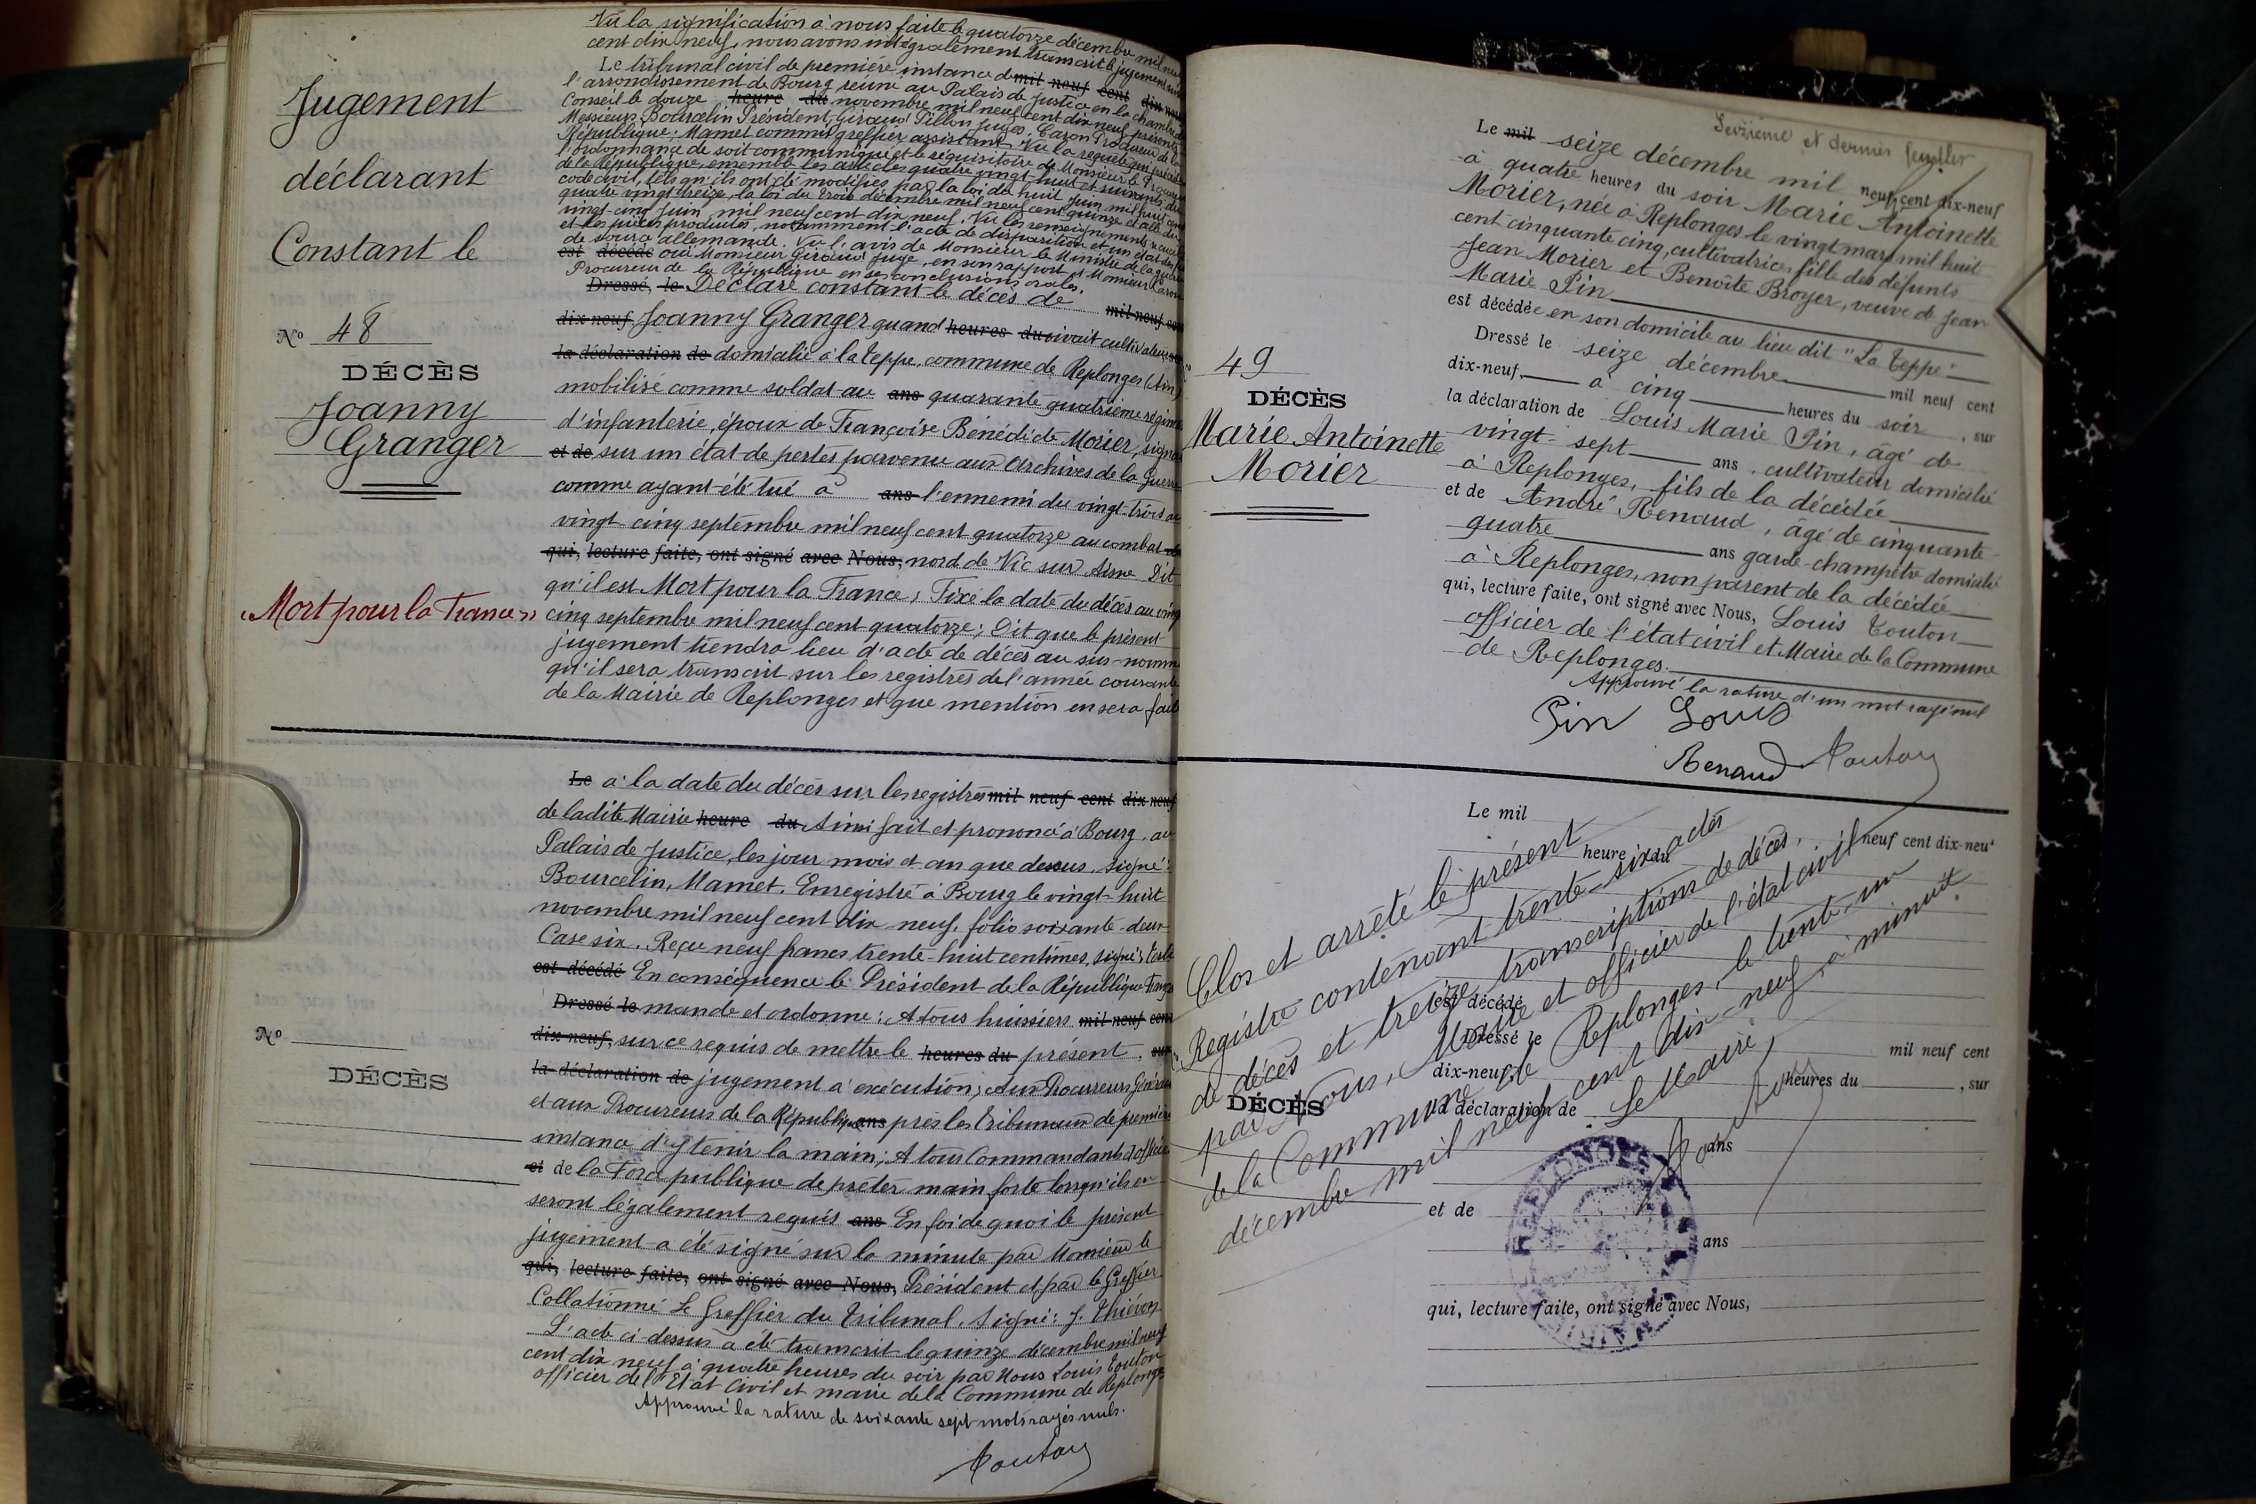 Jugement
déclarant
Constant le
No 48
DÉCÈS
Joanny
Granger
"Mort pour la France"
Vu la signification à nous faite le quatorze décembre mil neuf
cent dix neuf, nous avons intégralement transcrit le jugement
Le tribunal civil de première instance de mil neuf cent dix neuf
l'arrondissement de Bourg réuni au Palais de Justice en la chambre
Conseil le douze heure du novembre mil neuf cent dix neuf présents
Messieurs Bourcelin Président, Giraud Pillon juges, Caron Procureur de la
République; Mamet commis greffier assistant. Vu la requête qui précède
l'ordonnance de soit communiqué et le réquisitoire de Monsieur le Procureur
de la République, ensemble les articles quatre vingt huit et suivants du
code civil, tels qu'ils ont été modifiés par la loi de huit juin mil huit cent
quatre vingt treize, la loi du trois décembre mil neuf cent quinze et celle du
vingt-cinq juin mil neuf cent dix neuf. Vu les renseignements
et les pièces produites, notamment l'acte de disparition et un état
de source allemande. Vu l'avis de Monsieur le Ministre de la guerre
est décédé ouï Monsieur Giraud juge, en son rapport et Monsieur Caron
Procureur de la République en ses conclusions orales.
Dressé, le Déclare constant le décès de mil neuf cent
dix-neuf, Joanny Granger quand heures du vivait cultivateur
la déclaration de domicilié à la Teppe, commune de Replonges (Ain)
mobilisé comme soldat au ans quarante quatrième régiment
d'infanterie, époux de Françoise Bénédicte Morier, signalé
et de sur un état de pertes parvenu aux Archives de la Guerre
comme ayant été tué à ans l'ennemi du vingt-trois au
vingt cinq septembre mil neuf cent quatorze au combat de
qui, lecture faite, ont signé avec Nous, nord de Vic sur Aisne Dit
qu'il est Mort pour la France; Fixe la date du décès au vingt
cinq septembre mil neuf cent quatorze; Dit que le présent
jugement tiendra lieu d'acte de décès au sus-nommé
qu'il sera transcrit sur les registres de l'année courante
de la Mairie de Replonges et que mention en sera faite
No
DÉCÈS
Le à la date du décès sur les registres mil neuf cent dix-neuf
de ladite Mairie heure du Ainsi fait et prononcé à Bourg, au
Palais de Justice, les jour mois et an que dessus, signé:
Bourcelin, Mamet. Enregistré à Bourg le vingt-huit
novembre mil neuf cent dix neuf, folio soixante-deux
Case six. Reçu neuf francs trente-huit centimes, signé:
est décédé En conséquence le Président de la République
Dressé le mande et ordonne: A tous huissiers mil neuf cent
dix-neuf, sur ce requis de mettre le heures du présent, sur
la déclaration de jugement à exécution; Aux Procureurs Généraux
et aux Procureurs de la République ans près les tribunaux de première
instance d'y tenir la main; A tous Commandants et officiers
et de la Force publique de prêter main forte lorsqu'ils en
seront légalement requis ans En foi de quoi le présent
jugement a été signé sur la minute par Monsieur le
qui, lecture faite, ont signé avec Nous, Président et par le Greffier
Collationné Le Greffier du tribunal. Signé: J. Thiévon
L'acte ci-dessus a été transcrit le quinze décembre mil neuf
cent dix neuf à quatre heures du soir par Nous Louis Touton
officier de l'Etat Civil et maire de la Commune de Replonges
Approuvé la rature de soixante sept mots rayés nuls.
Touton
49
DÉCÈS
Marie Antoinette
Morier
Seizième et dernier feuillet
Le mil seize décembre mil neuf cent dix-neuf
à quatre heures du soir Marie Antoinette
Morier, née à Replonges le vingt mars mil huit
cent cinquante cinq, cultivatrice, fille des défunts
Jean Morier et Benoîte Broyer, veuve de Jean
Marie Pin
est décédée en son domicile au lieu dit "La Teppe"
Dressé le seize décembre mil neuf cent
dix-neuf, à cinq heures du soir, sur
la déclaration de Louis Marie Pin, âgé de
vingt-sept ans, cultivateur domicilié
à Replonges, fils de la décédée
et de André Renaud, âgé de cinquante-
quatre ans garde-champêtre domicilié
à Replonges, non parent de la décédée
qui, lecture faite, ont signé avec Nous, Louis Touton
officier de l'état civil et Maire de la Commune
de Replonges.
Approuvé la rature d'un mot rayé nul
Pin Louis
Renaud Touton
Le mil neuf cent dix-neuf
heure du
est décédé
Dressé le mil neuf cent
dix-neuf, heures du , sur
la déclaration de
DÉCÈS
ans
et de
ans
qui, lecture faite, ont signé avec Nous,
Clos et arrêté le présent
Registre contenant trente-six actes
de décès et treize transcriptions de décès,
par Nous, Maire et officier de l'état civil
de la Commune de Replonges, le trente-un
décembre mil neuf cent dix-neuf, à minuit.
Le Maire,
Touton
REPLONGES